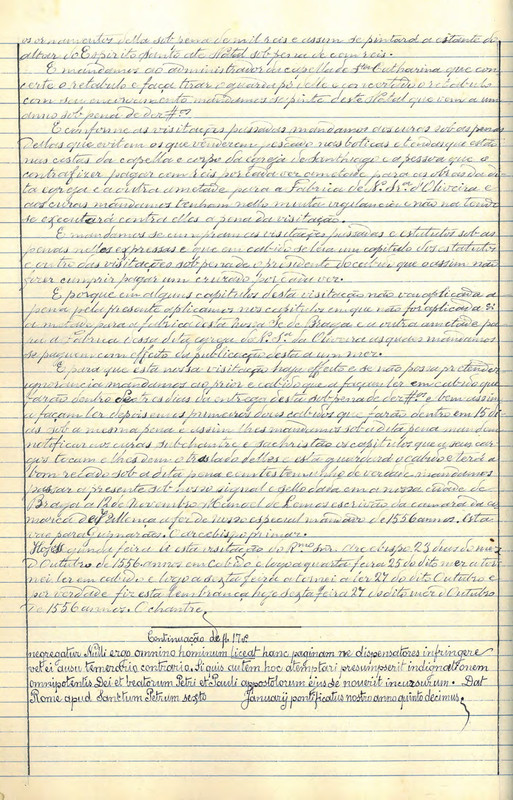 os ornamentos della sob pena de mil reis e assim se pintará a estante do
altar do Espirito Santo até Natal sob pena de cem reis.
E mandamos ao administrador da capella de Sta Catharina que con
certe o retabulo e faça tirar o guarda pó delle e concertado o retabulo
com seu encerramento mandamos se pinte deste Natal que vem a um
anno sob pena de dez #os
E conforme as visitações passadas mandamos aos curas sob as penas
dellas que evitem os que venderem pescado nas boticas e tendas que estão
nas costas da capella e corpo da egreja de Santhiago e a pessoa que o
contrafizer pagar cem reis por cada vez ametade para as obras da di
ta egreja e a outra ametade para a Fabrica de N. Sra d'Oliveira e
aos curas mandamos tenham nello muita vigilancia e não na tendo
se executará contra elles a pena da visitação.
E mandamos se cumpram as visitações passadas e estatutos sob as
penas nelles expressas e que em cabido se leia um capitulo dos estatutos
e outro das visitações sob pena do presidente do cabido que o assim não
fizer cumprir pagar um cruzado por cada vez.
E porque em alguns capitulos desta visitação não vem aplicada a
pena pela presente aplicamos nos capitulos em que não for aplicada a
metade para a fabrica desta nossa Sé de Braga e a outra ametade pa
ra a Fabrica dessa dita egreja de N. Sra da Oliveira as quaes mandamos
se paguem com effeito da publicação desta a um mez.
E para que esta nossa visitação haja effeito e se não possa pretender
ignorancia mandamos ao prior e cabido que a façam ler em cabido que
farão dentro em tres dias da entrega desta sob pena de dez #os e bem assim
a façam ler depois em os primeiros dois cabidos que farão dentro em 15 di
as sob a mesma pena e assim lhes mandamos sob a dita pena mandem
notificar aos curas subchantre e sachristão os capitulos que a seus car
gos tocam e lhes dem o traslado delles e esta guardará o cabido e terá a
bom recado sob a dita pena e em testemunho de verdade mandamos
passar a presente sob nosso signal e sello dada em a nossa cidade de
Braga a 12 de Novembro Manoel de Lemos escrivão da camara da co
marca de Vallença a fez de nosso especial mandado de 1556 annos. Esta
vae para Guimarães. O arcebispo primaz.
Hoje segunda feira li esta visitação do Rmo snr. Arcebispo 23 dias do mez
d'Outubro de 1556 annos em Cabido e logo a quarta feira 25 do dito mez a tor
nei ler em cabido e logo a sexta feira a tornei a ler 27 do dito Outubro e
por verdade fiz esta lembrança hoje sexta feira 27 do dito mez d'Outubro
de 1556 annos. O chantre,
Continuação de fl. 17 v.
neoregatier Nulli ergo omnino hominum liceat hanc paginam ne dispensatores infringere
vel ei ausu temerario contrario. Si quis autem hoc atemptari presumpserit indignationem
omnipotentis Dei et beatorum Petri et Pauli appostolorum ejus se noverit incursurum. Dat
Rome apud Sanctum Petrum sexto Januarij pontificatus nostro anno quinto decimus.